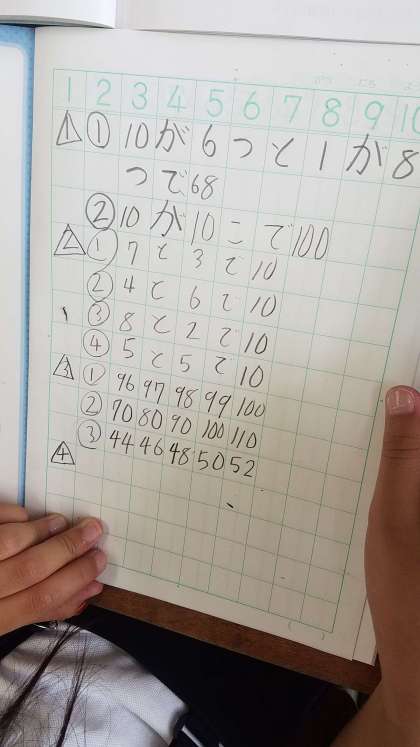 1 2 3 4 5 6 7 8 9 10
1 ① 10が6つと1が8
つで68
② 10が10こで100
2 ① 7と3で10
② 4と6で10
③ 8と2で10
④ 5と5で10
3 ① 96 97 98 99 100
② 70 80 90 100 110
③ 44 46 48 50 52
4